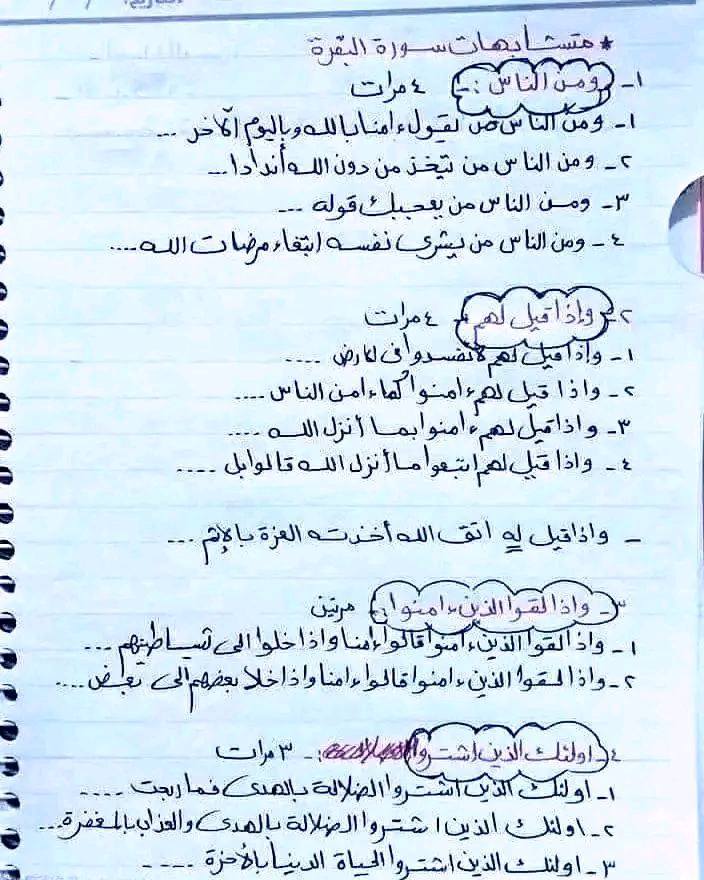 * متشابهات سورة البقرة
١- ومن الناس :- ٤ مرات
١- ومن الناس من يقول ءامنا بالله وباليوم الآخر ...
٢- ومن الناس من يتخذ من دون الله أندادا...
٣- ومن الناس من يعجبك قوله ...
٤- ومن الناس من يشرى نفسه ابتغاء مرضات الله....
٢- وإذا قيل لهم :- ٤ مرات
١- وإذا قيل لهم لا تفسدوا فى الأرض ....
٢- واذا قيل لهم ءامنوا كماءامن الناس ....
٣- واذا قيل لهم ءامنوا بما أنزل الله ....
٤- واذا قيل لهم اتبعوا ما أنزل الله قالوا بل ....
- واذا قيل له اتق الله أخذته العزة بالإثم ...
٣- واذا لقوا الذين ءامنوا :- مرتين
١- واذا لقوا الذين ءامنوا قالوا ءامنا واذا خلوا الى شياطينهم ...
٢- واذا لقوا الذين ءامنوا قالوا ءامنا واذا خلا بعضهم الى بعض ....
٤- اولئك الذين اشتروا :- ٣ مرات
١- اولئك الذين اشتروا الضلالة بالهدى فما ربحت ....
٢- اولئك الذين اشتروا الضلالة بالهدى والعذاب بالمغفرة...
٣- اولئك الذين اشتروا الحياة الدنيا بالأخرة ....